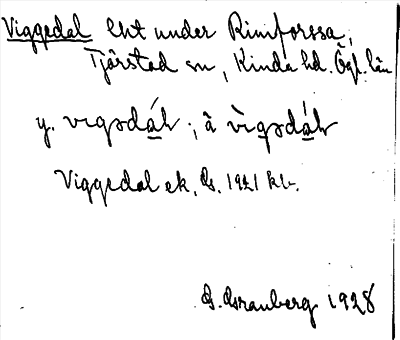 Viggedal lht under Rimforssa,
Tjärstad sn, Kinda hd. Ögl. län
y. vɩgədáɫ; ä vɩ̀gədáɫ
Viggedal ek, Gs. 1921 kb.
G. Granberg 1928